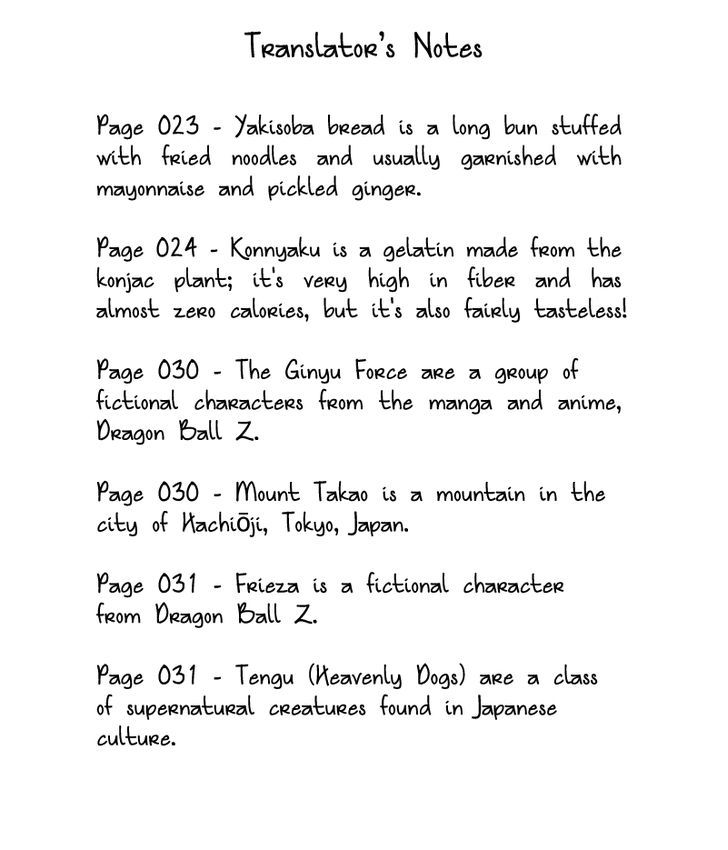 Translator's Notes
Page 023 - Yakisoba bread is a long bun stuffed
with fried noodles and usually garnished with
mayonnaise and pickled ginger.
Page 024 - Konnyaku is a gelatin made from the
konjac plant; it's very high in fiber and has
almost zero calories, but it's also fairly tasteless!
Page 030 - The Ginyu Force are a group of
fictional characters from the manga and anime,
Dragon Ball Z.
Page 030 - Mount Takao is a mountain in the
city of Hachiōji, Tokyo, Japan.
Page 031 - Frieza is a fictional character
from Dragon Ball Z.
Page 031 - Tengu (Heavenly Dogs) are a class
of supernatural creatures found in Japanese
culture.